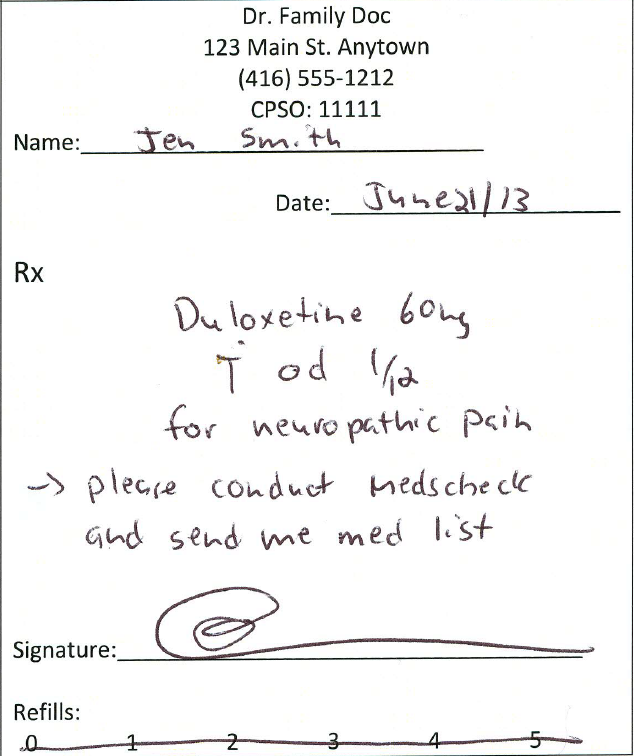 Dr. Family Doc
123 Main St. Anytown
(416) 555-1212
CPSO: 11111
Name: Jen Smith
Date: June 21/13
Rx
Duloxetine 60mg
T od 1/12
for neuropathic pain
→ please conduct Medscheck
and send me med list
Signature:
Refills:
0 1 2 3 4 5